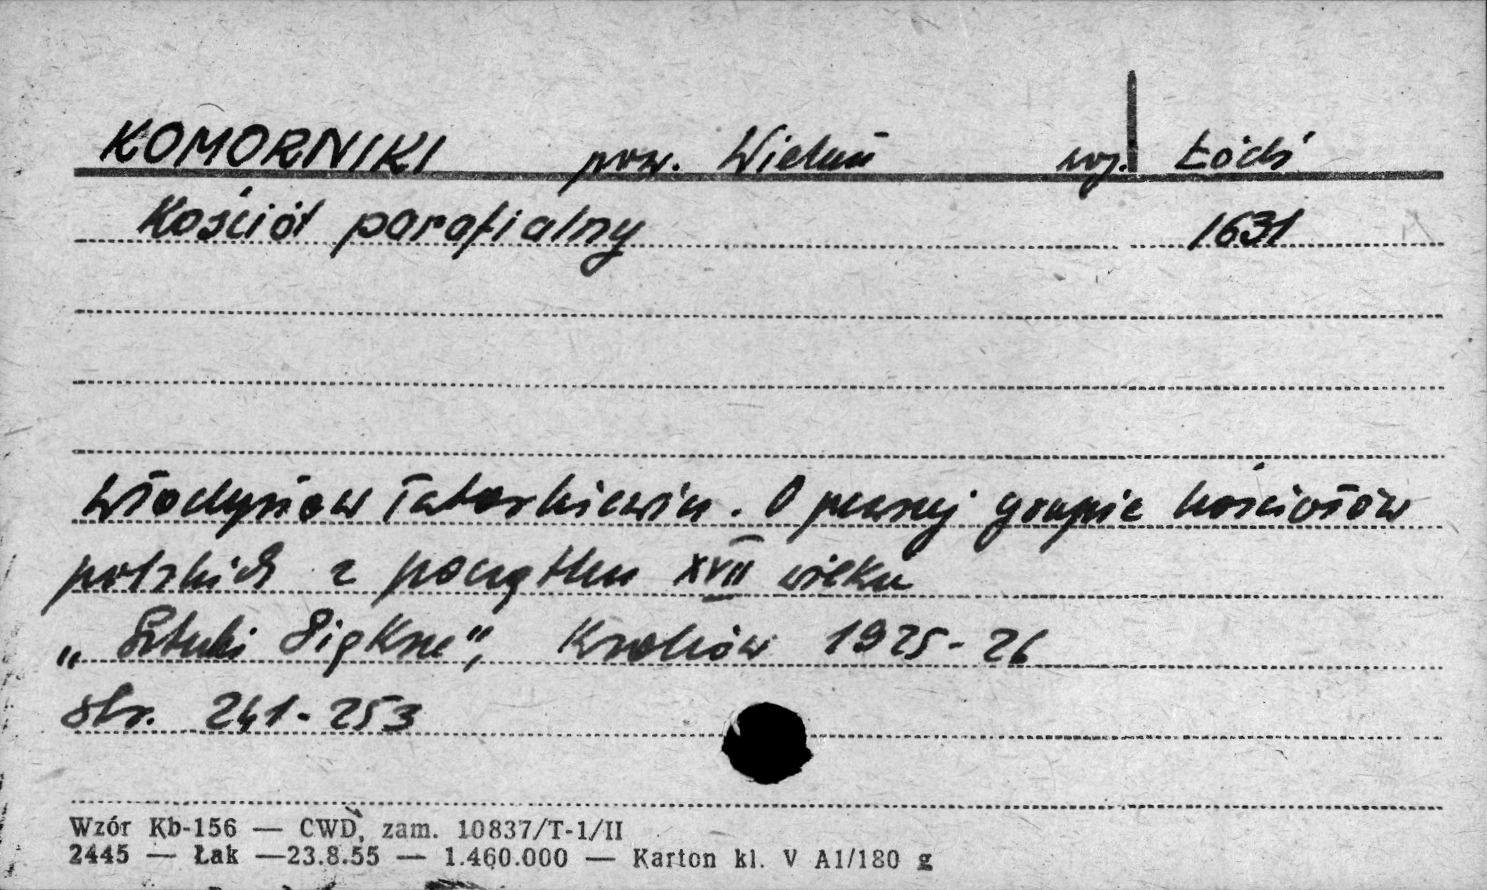 KOMORNIKI pow. Wieluń woj. Łódź
Kościół parafialny 1631
Władysław Tatarkiewicz. O pewnej grupie kościołów
polskich z początku XVII wieku
„Sztuki Piękne”, Kraków 1925-26
str. 241-253
Wzór Kb-156 — CWD, zam. 10837/T-1/II
2445 — Łak —23.8.55 — 1.460.000 — Karton kl. V A1/180 g